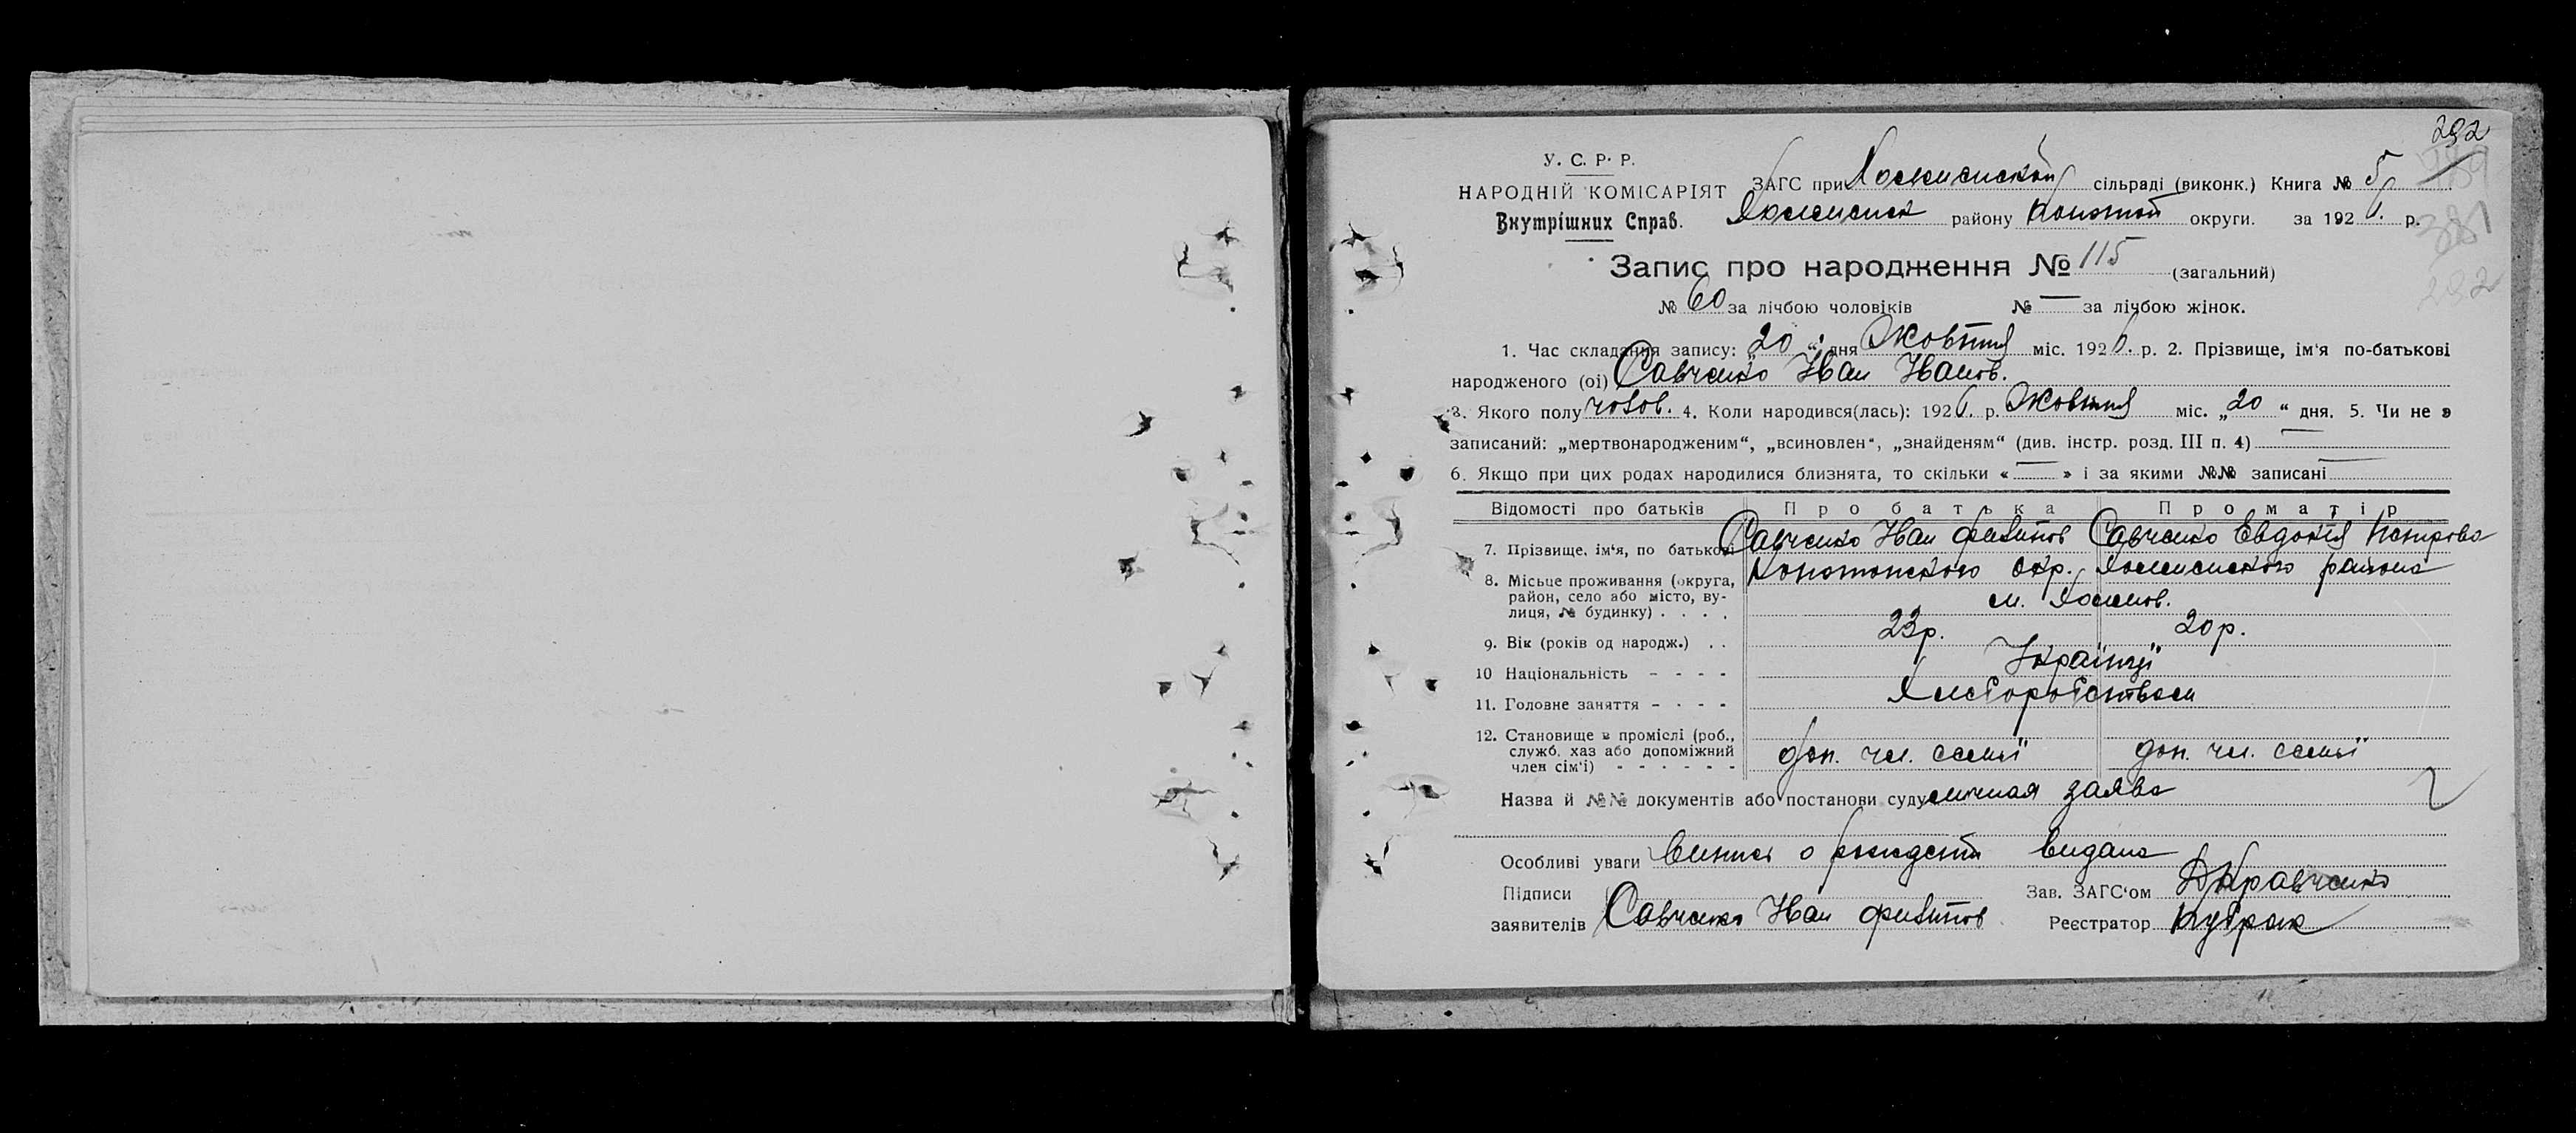 292
У. С. Р. Р.
НАРОДНІЙ КОМІСАРІЯТ
Внутрішних Справ.
ЗАГС при сільраді (виконк.) Книга № 5
району Конотоп округи. за 1926 р.
Запис про народження № 115 (загальний)
№ 60 за лічбою чоловіків № — за лічбою жінок.
1. Час складання запису: „20“ дня Жовтня міс. 1926. р. 2. Прізвище, ім'я по-батькові
народженого (ої) Савченко Иван Иванов.
3. Якого полу чолов. 4. Коли народився(лась): 1926. р. Жовтня міс. „20“ дня. 5. Чи не є
записаний: „мертвонародженим“, „всиновлен“, „знайденям“ (див. інстр. розд. III п. 4) —
6. Якщо при цих родах народилися близнята, то скільки «—» і за якими №№ записані —
Відомості про батьків Про батька Про матір
7. Прізвище, ім'я, по батькові Савченко Иван Филипов Савченко Евдокія Петрова
8. Місьце проживання (округа, район, село або місто, вулиця, № будинку) . . . . Конотопского окр. района
м.
9. Вік (років од народж.) . . 23р. 20р.
10 Національність - - - - Українці
11. Головне заняття - - - - Хлеборобством
12. Становище в промислі (роб., служб. хаз або допоміжний член сім'ї) - - - - - - доп. чл. семьї доп. чл. семьї
Назва й №№ документів або постанови суду личная заява
Особливі уваги Випись о рождении видана
Підписи Зав. ЗАГС'ом Кравченко
заявителів Савченко Иван Филипов Реєстратор